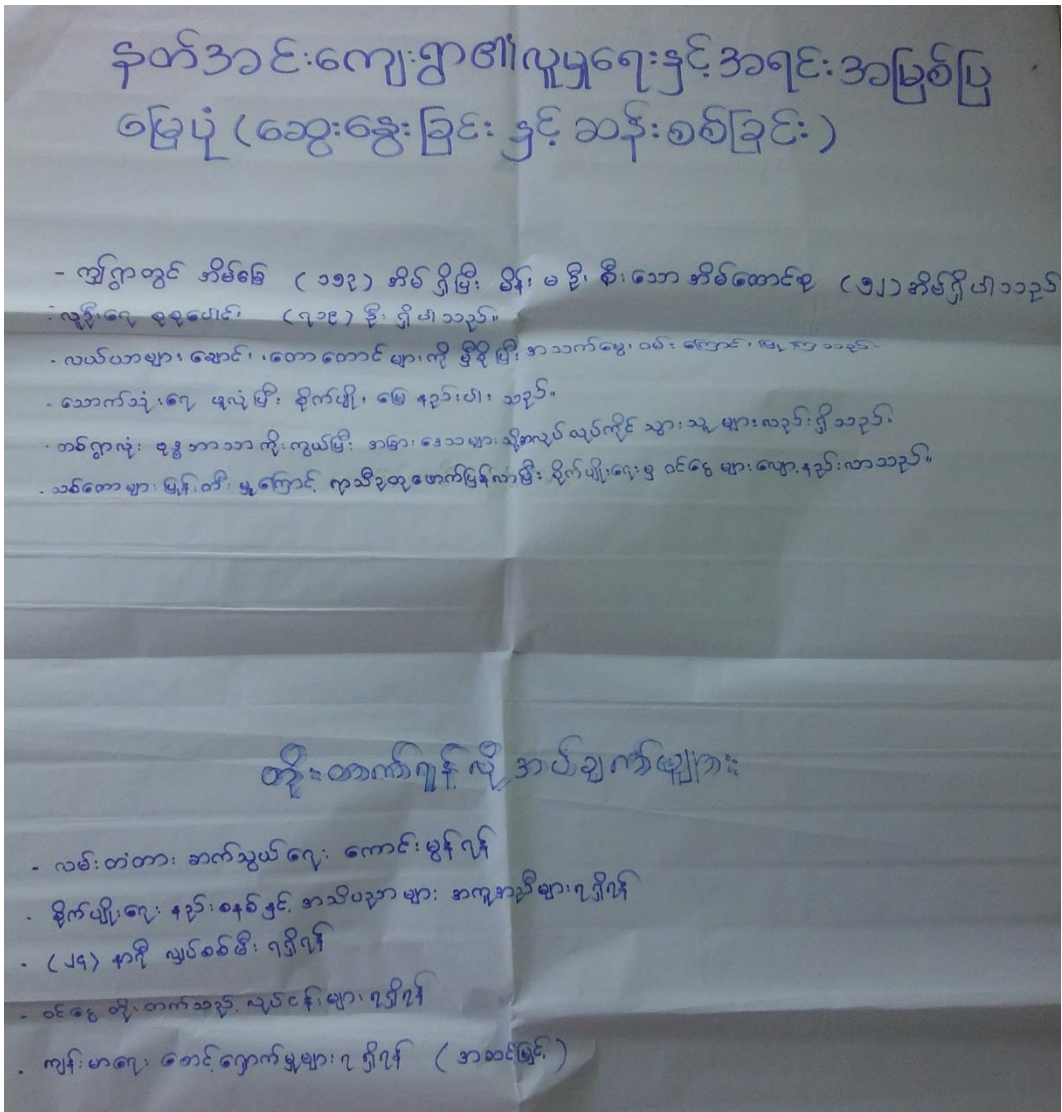 နတ်အင်းကျေးရွာ၏လူမှုရေးနှင့်အရင်းအမြစ်ပြ
မြေပုံ (ဆွေးနွေးခြင်း နှင့် ဆန်းစစ်ခြင်း)
- ဤရွာတွင် အိမ်ခြေ (၁၅၃) အိမ် ရှိပြီး မိန်းမ ဦး စီးသော အိမ်ထောင်စု (၅၂) အိမ်ရှိပါသည်
- လူဦးရေ စုစုပေါင်း (၇၁၉) ဦး ရှိပါသည်။
- လယ်ယာများ၊ ချောင်း၊ တောတောင် များကို မှီခိုပြီး အသက်မွေး ဝမ်း ကြောင်း ပြု ကြသည်။
- သောက်သုံးရေ ဖူလုံပြီး စိုက်ပျိုး မြေ နည်းပါး သည်။
- တစ်ရွာလုံး ဗုဒ္ဓဘာသာ ကိုးကွယ်ပြီး အခြား ဒေသများ သို့အလုပ် လုပ်ကိုင် သွားသူ များလည်း ရှိသည်။
- သစ်တောများ ပြုန်းတီး မှုကြောင့် ရာသီဥတုဖောက်ပြန်လာပြီး စိုက်ပျိုးရေးမှ ဝင်ငွေ များလျော့နည်းလာသည်။
တိုးတက်ရန် လို အပ်ချက်များ
- လမ်းတံတား ဆက်သွယ်ရေး ကောင်းမွန်ရန်
- စိုက်ပျိုးရေး နည်းစနစ်နှင့် အသိပညာများ အကူအညီများရရှိရန်
- (၂၄) နာရီ လျှပ်စစ်မီး ရရှိရန်
- ဝင်ငွေ တိုးတက်သည့် လုပ်ငန်းများ ရရှိရန်
- ကျန်းမာရေး စောင့်ရှောက်မှုများ ရရှိရန် (အဆင်မြင့်)